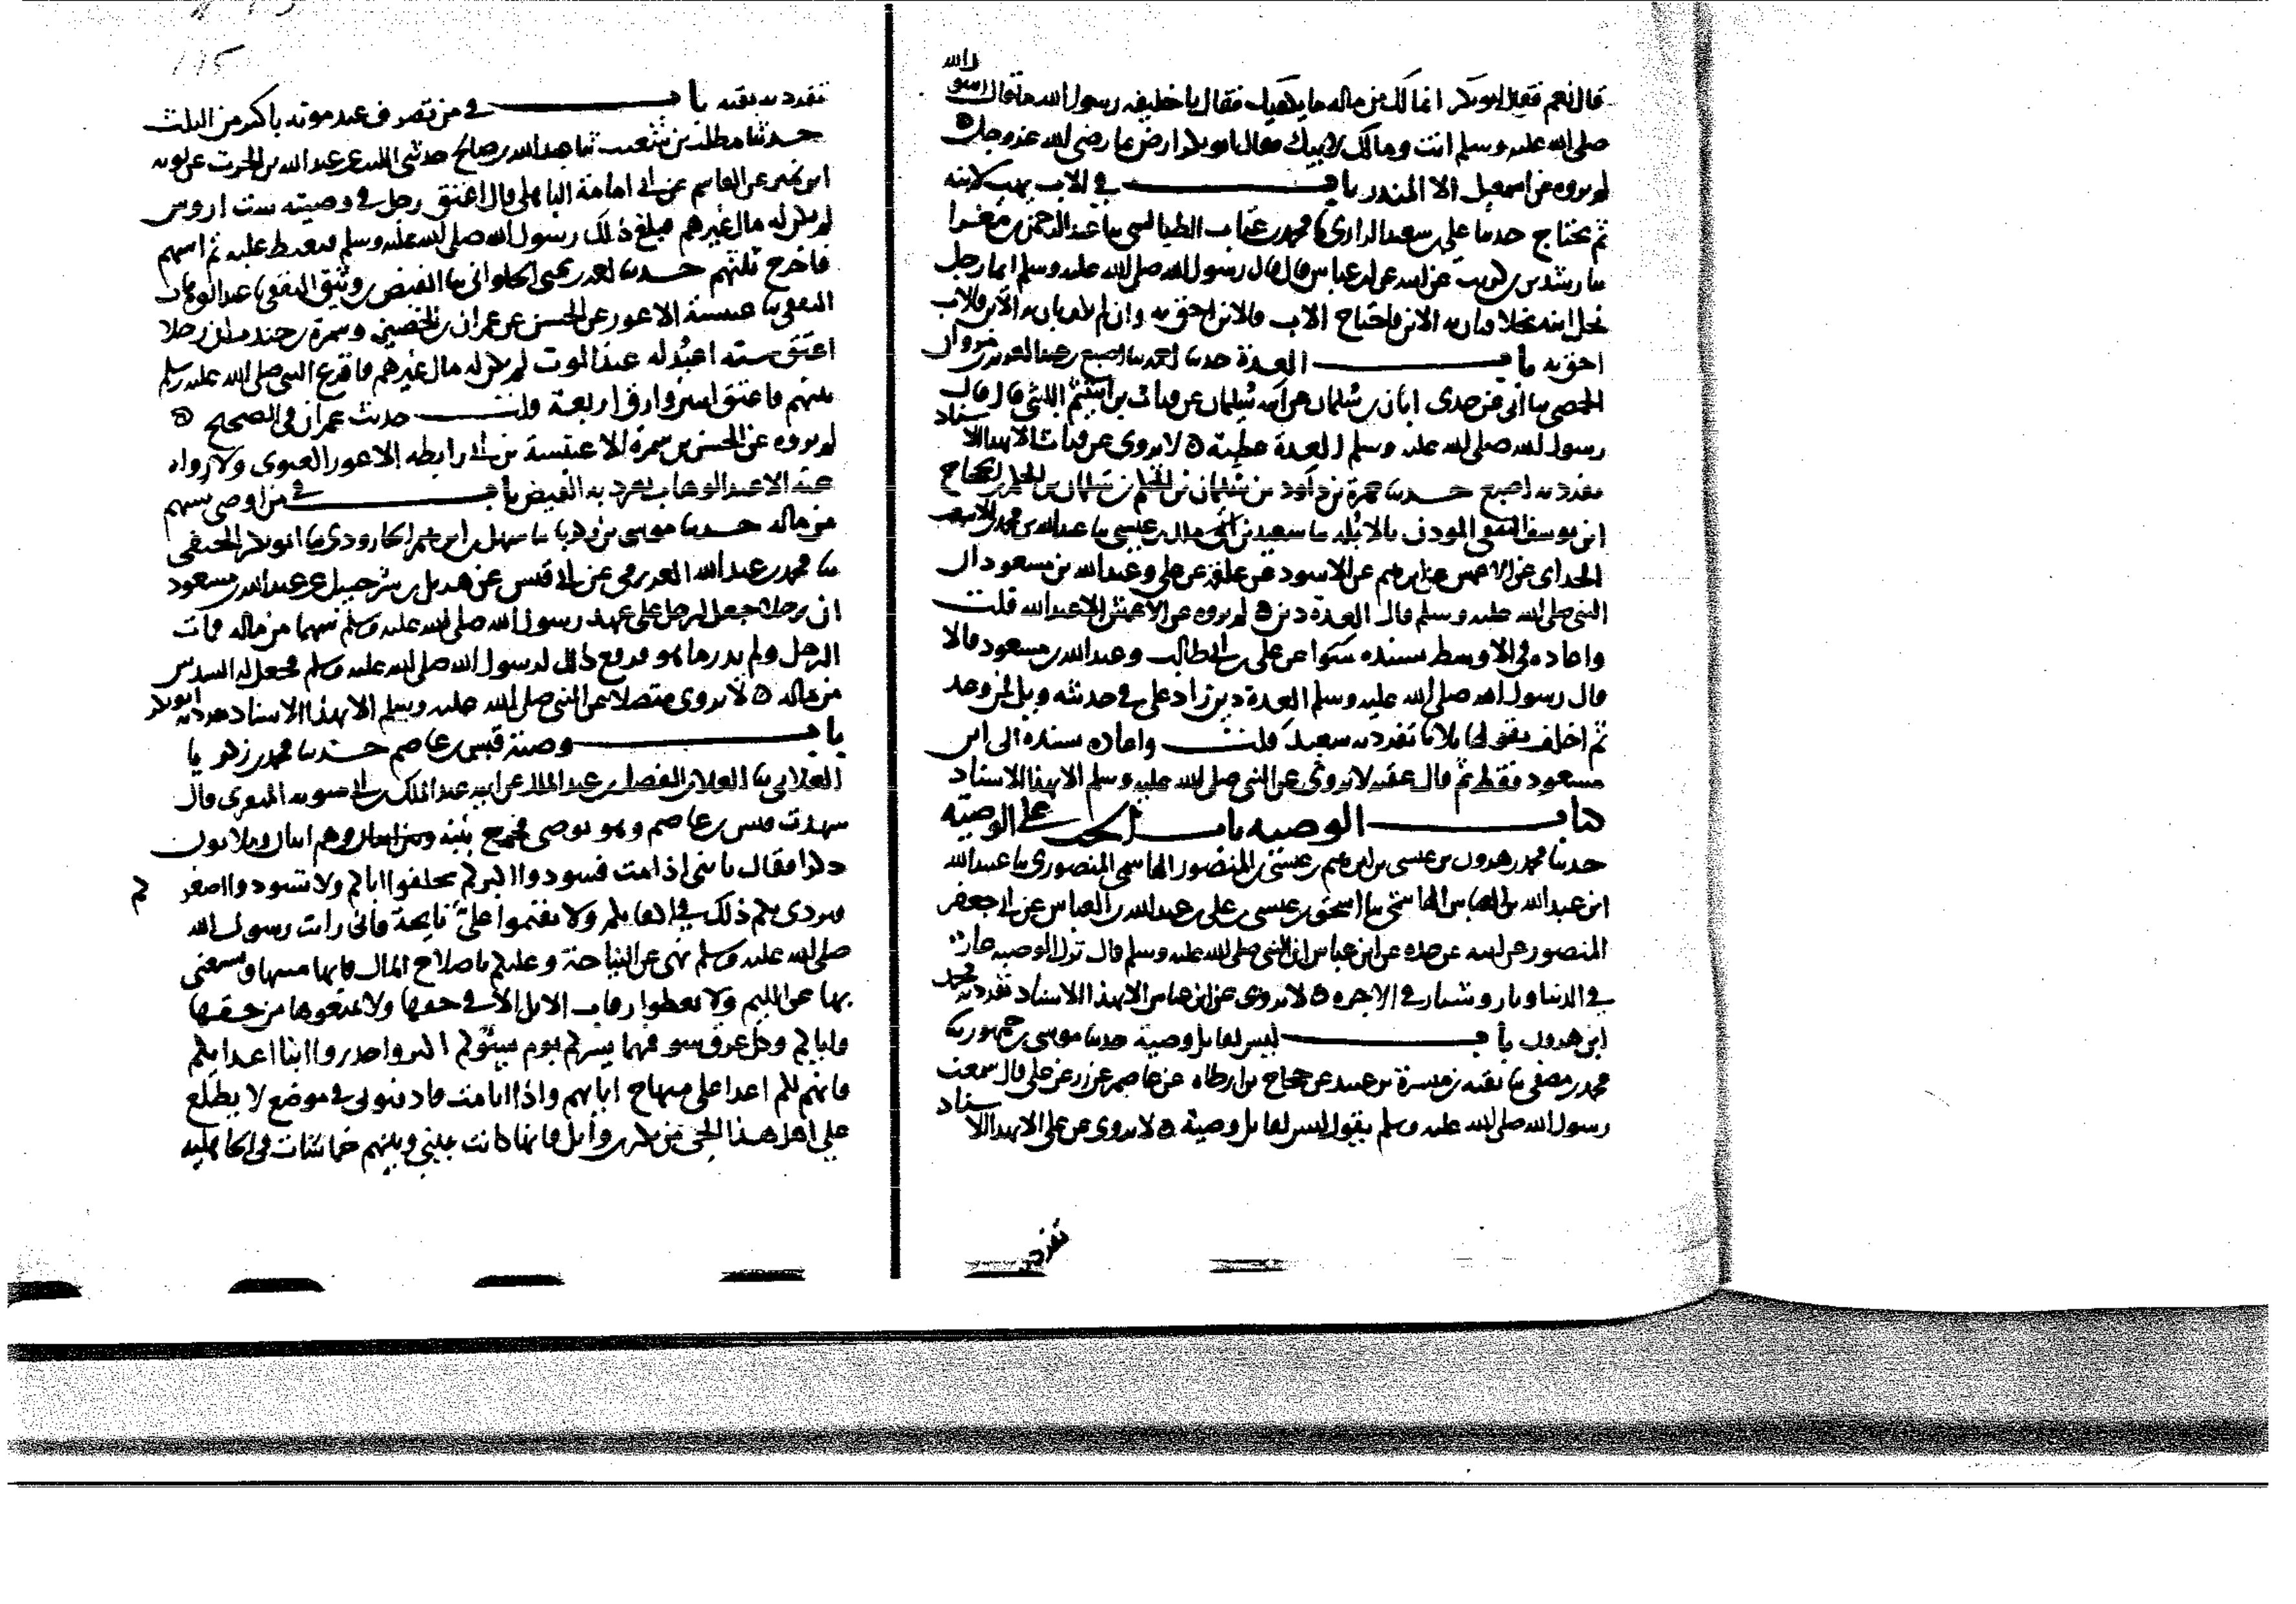 قال نعم فقال ابو بكر انما لك من ماله ما يكفيك فقال يا خليفه رسول الله ما قال رسول الله
صلى الله عليه وسلم انت ومالك لابيك فقال ابو بكر ارض بما رضى الله عز وجل
لم يروه عن اسمعيل الا المنذر باب في الاب يهب لابنه
ثم يحتاج حدثنا على بن سعيد الرازي ثنا محمد بن عتاب الطيالسي ثنا عبد الرحمن بن مغرا
ثنا رشدين بن كريب عن ابيه عن ابن عباس قال قال رسول الله صلى الله عليه وسلم ايما رجل
نحل ابنه نحلا فبان به الابن فاحتاج الاب فالابن احق به وان لم يكن بان به الابن فالاب
احق به باب العدة حدثنا احمد ثنا اصبع بن عبد العزيز بن مروان
الحمصي ثنا ابي عن جدى ابان بن سليمان عن ابيه سليمان عن قباث بن اشيم الليثي قال قال
رسول الله صلى الله عليه وسلم العدة عطية ه لا يروى عن قباث الا بهذا الاسناد
تفرد به اصبع حدثنا حمزة بن داود بن سليمان بن الحكم بن سليمان بن الحجاج
ابن يوسف الثقفي المودب بالابله ثنا سعيد بن عيسى ثنا عبد الله بن محمد بن الاشعث
الحداى عن الاعمش عن ابرهيم عن الاسود عن علقمة عن على وعبد الله بن مسعود ان
النبي صلى الله عليه وسلم قال العدة دين ه لم يروه عن الاعمش الا عبد الله قلت
واعاده في الاوسط بسنده سوا عن على بن ابي طالب وعبد الله بن مسعود قالا
قال رسول الله صلى الله عليه وسلم العدة دين زاد على في حديثه ويل لمن وعد
ثم اخلف يقولها ثلاثا تفرد به سعيد قلت واعاده بسنده الى ابن
مسعود فقط ثم قال عقبه لا يروى عن النبي صلى الله عليه وسلم الا بهذا الاسناد
كتاب الوصيه باب الحث على الوصيه
حدثنا محمد بن هرون بن عيسى بن ابرهيم بن عيسى بن المنصور الهاشمي المنصوري ثنا عبد الله
ابن عبد الله بن العباس الهاشمي ثنا اسحق بن عيسى بن على بن عبد الله بن العباس عن ابي جعفر
المنصور عن ابيه عن جده عن ابن عباس ان النبي صلى الله عليه وسلم قال ترك الوصيه عار
في الدنيا ونار وشنار في الاخره ه لا يروى عن ابن عباس الا بهذا الاسناد تفرد به محمد
ابن هرون باب ليس لقاتل وصية حدثنا موسى بن جمهور ثنا
محمد بن مصفى ثنا بقيه عن ميسرة بن عبيد عن حجاج بن ارطاه عن عاصم عن زر عن على قال سمعت
رسول الله صلى الله عليه وسلم يقول ليس لقاتل وصية ه لا يروى عن على الا بهذا الاسناد
تفرد
تفرد به بقيه باب في من تصرف عند موته باكثر من الثلث
حدثنا مطلب بن شعيب ثنا عبد الله بن صالح حدثني الليث عن عبد الله بن الحرث عن توبه
ابن نمر عن القاسم عن ابي امامة الباهلي قال اعتق رجل في وصيته ست اروس
لم يكن له مال غيرهم فبلغ ذلك رسول الله صلى الله عليه وسلم فتغيظ عليه ثم اسهم
فاخرج ثلثهم حدثنا احمد بن يحيى الحلواني ثنا الفيض بن وثيق الثقفي ثنا عبد الوهاب
الثقفي ثنا عنبسة الاعور عن الحسن عن عمران بن الحصين وسمرة بن جندب ان رجلا
اعتق سته اعبد له عند الموت لم يكن له مال غيرهم فاقرع النبي صلى الله عليه وسلم
بينهم فاعتق اثنين وارق اربعة قلت حديث عمران في الصحيح ه
لم يروه عن الحسن عن سمرة الا عنبسة بن ابي رايطه الاعور الغنوى ولا رواه
عنه الا عبد الوهاب تفرد به الفيض باب في من اوصى بسهم
من ماله حدثنا موسى بن زكريا ثنا سهل بن ابرهيم الجارودي ثنا ابو بكر الحنفي
ثنا محمد بن عبد الله العرزمي عن ابي قيس عن هذيل بن شرحبيل عن عبد الله بن مسعود
ان رجلا جعل لرجل على عهد رسول الله صلى الله عليه وسلم سهما من ماله فمات
الرجل ولم يدر ما هو فرفع ذلك لرسول الله صلى الله عليه وسلم فجعل له السدس
من ماله ه لا يروى متصلا عن النبي صلى الله عليه وسلم الا بهذا الاسناد تفرد به ابو بكر
باب وصية قيس بن عاصم حدثنا محمد بن زكريا
الغلابي ثنا العلاء بن الفضل بن عبد الملك عن ابيه عبد الملك بن ابي سويه المنقرى قال
شهدت قيس بن عاصم وهو يوصى فجمع بنيه وهم اثنان وثلاثون
ذكرا فقال يا بنى اذا مت فسودوا اكبركم تخلفوا اباكم ولا تسودوا اصغركم
فيزدى بكم ذلك في اكفايكم ولا تقيموا على نايحة فاني رايت رسول الله
صلى الله عليه وسلم نهى عن النياحة وعليكم باصلاح المال فانها منبهة ويستغنى
بها عن اللئيم ولا تعطوا رقاب الابل الا في حقها ولا تمنعوها من حقها
واياكم وكل عرق سو فمهما يسركم يوم يسوكم اكثر واحذروا ابنا اعدايكم
فانهم لكم اعدا على منهاج ابايهم واذا انا مت فادفنوني في موضع لا يطلع
على اهل هذا الحي من بكر بن وايل فانها كانت بيني وبينهم خماشات في الجاهليه